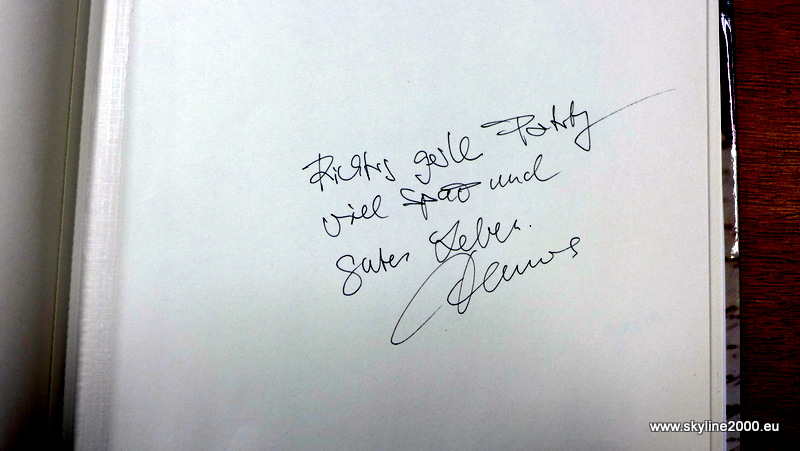 Richtig geile Party
viel Spaß und
gutes Leben.
www.skyline2000.eu